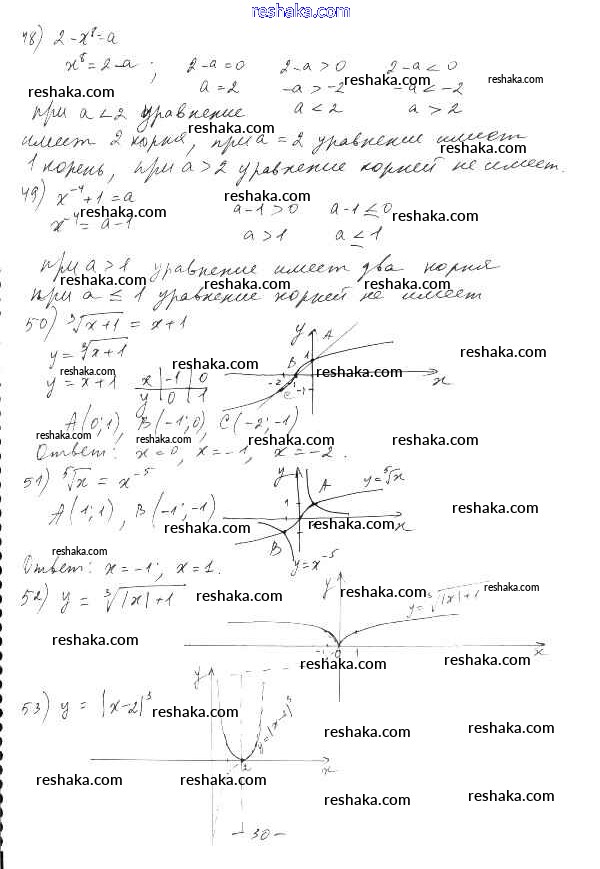 reshaka.com
48) 2-x⁸=a
x⁸=2-a ; 2-a=0 2-a>0 2-a<0
a=2 -a>-2 -a<-2
reshaka.com reshaka.com
при a<2 уравнение a<2 a>2
reshaka.com
имеет 2 корня, при a=2 уравнение имеет
reshaka.com
1 корень, при a>2 уравнение корней не имеет.
reshaka.com
49) x⁻⁴+1=a a-1>0 a-1≤0
reshaka.com reshaka.com
x⁻⁴=a-1 a>1 a≤1
reshaka.com
при a>1 уравнение имеет два корня
reshaka.com reshaka.com reshaka.com
при a≤1 уравнение корней не имеет
reshaka.com reshaka.com
50) ³√x+1 = x+1
y=³√x+1
reshaka.com reshaka.com reshaka.com reshaka.com
y=x+1 x -1 0
y 0 1
y A 1 B -2 -1 C -1 x
A(0;1), B(-1;0), C(-2;-1)
reshaka.com reshaka.com reshaka.com reshaka.com
Ответ: x=0, x=-1, x=-2.
51) ⁵√x = x⁻⁵
y A y=⁵√x 1 x B y=x⁻⁵
A(1;1), B(-1;-1)
reshaka.com reshaka.com reshaka.com
reshaka.com
Ответ: x=-1; x=1.
52) y = ³√|x|+1
reshaka.com reshaka.com reshaka.com
y y=³√|x|+1
reshaka.com
-1 0 1 x
reshaka.com reshaka.com
53) y = |x-2|³
reshaka.com
y 2 x
reshaka.com reshaka.com
reshaka.com reshaka.com
reshaka.com reshaka.com
- 30 -